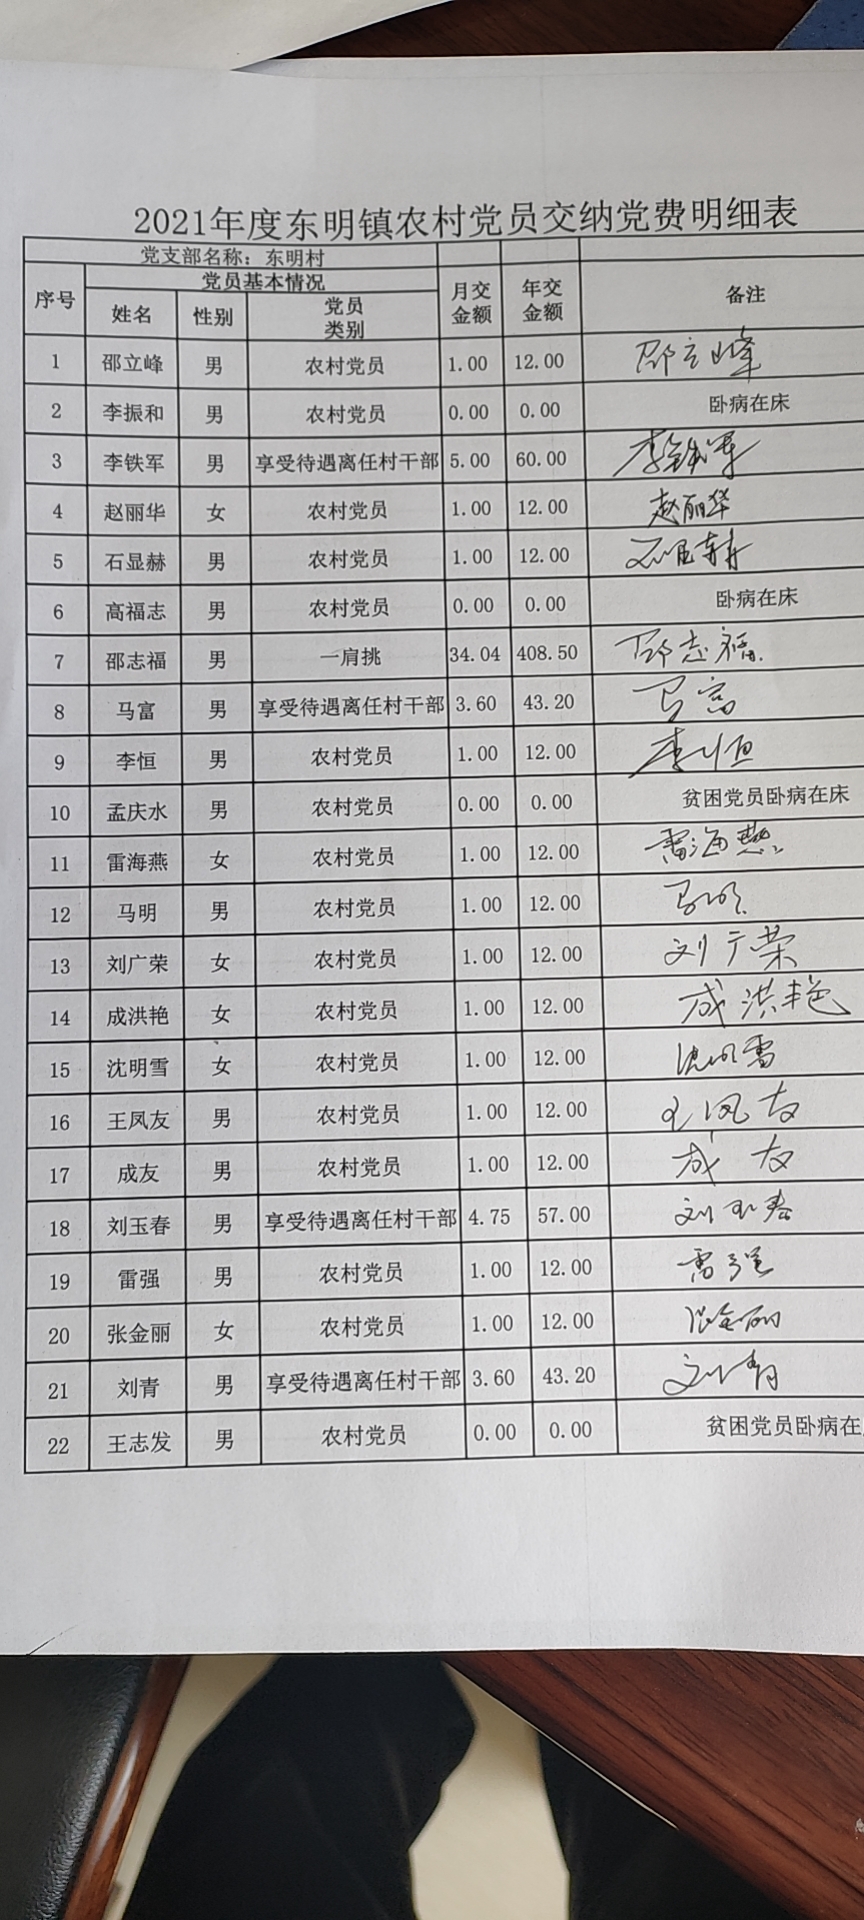 2021年度东明镇农村党员交纳党费明细表
党支部名称：东明村
序号 党员基本情况 月交金额 年交金额 备注
姓名 性别 党员类别
1 邵立峰 男 农村党员 1.00 12.00 邵立峰
2 李振和 男 农村党员 0.00 0.00 卧病在床
3 李铁军 男 享受待遇离任村干部 5.00 60.00 李铁军
4 赵丽华 女 农村党员 1.00 12.00 赵丽华
5 石显赫 男 农村党员 1.00 12.00 石显赫
6 高福志 男 农村党员 0.00 0.00 卧病在床
7 邵志福 男 一肩挑 34.04 408.50 邵志福
8 马富 男 享受待遇离任村干部 3.60 43.20 马富
9 李恒 男 农村党员 1.00 12.00 李恒
10 孟庆水 男 农村党员 0.00 0.00 贫困党员卧病在床
11 雷海燕 女 农村党员 1.00 12.00 雷海燕
12 马明 男 农村党员 1.00 12.00 马明
13 刘广荣 女 农村党员 1.00 12.00 刘广荣
14 成洪艳 女 农村党员 1.00 12.00 成洪艳
15 沈明雪 女 农村党员 1.00 12.00 沈明雪
16 王凤友 男 农村党员 1.00 12.00 王凤友
17 成友 男 农村党员 1.00 12.00 成友
18 刘玉春 男 享受待遇离任村干部 4.75 57.00 刘玉春
19 雷强 男 农村党员 1.00 12.00 雷强
20 张金丽 女 农村党员 1.00 12.00 张金丽
21 刘青 男 享受待遇离任村干部 3.60 43.20 刘青
22 王志发 男 农村党员 0.00 0.00 贫困党员卧病在